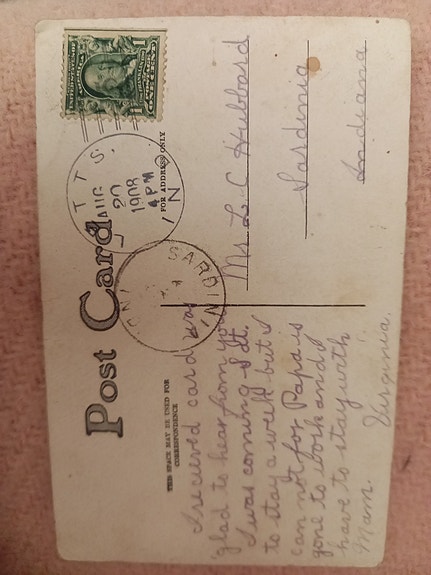 Post Card
THIS SPACE MAY BE USED FOR
CORRESPONDENCE
FOR ADDRESS ONLY
AUG
20
1908
4 PM
IN
SARD
IN
I recieved card was
glad to hear from you
I was coming
to stay a week but I
can not for Papa is
gone to work and I
have to stay with
Mam.
Virginia.
Ms. L. C. Hubbard
Sardinia
Indiana